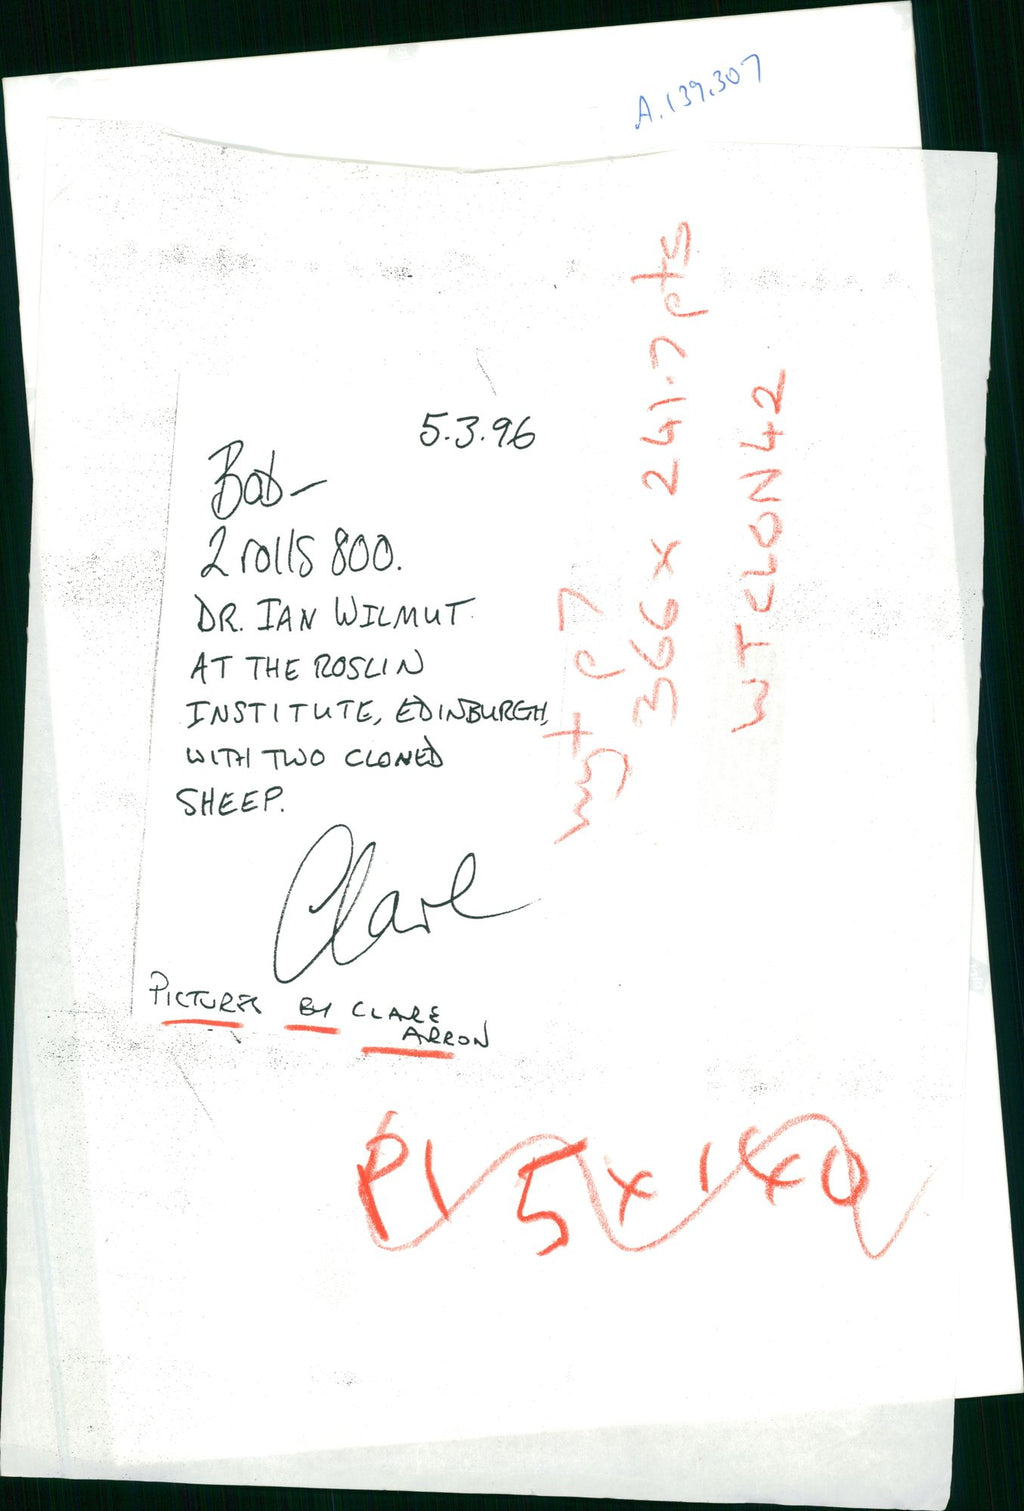 A.139.307
5.3.96
Bob-
2 rolls 800.
DR. IAN WILMUT
AT THE ROSLIN
INSTITUTE, EDINBURGH,
WITH TWO CLONED
SHEEP.
Clare
PICTURES BY CLARE
ARRON
p7
366 x 241.7 pts
WTCLON42
P1 5 x 140